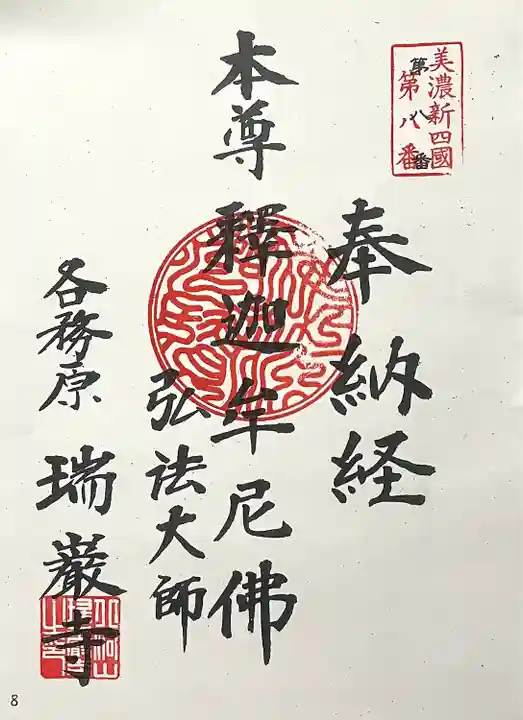 美濃新四國
第八番
第八番
奉納経
本尊釋迦牟尼佛
弘法大師
各務原
瑞巌寺
8